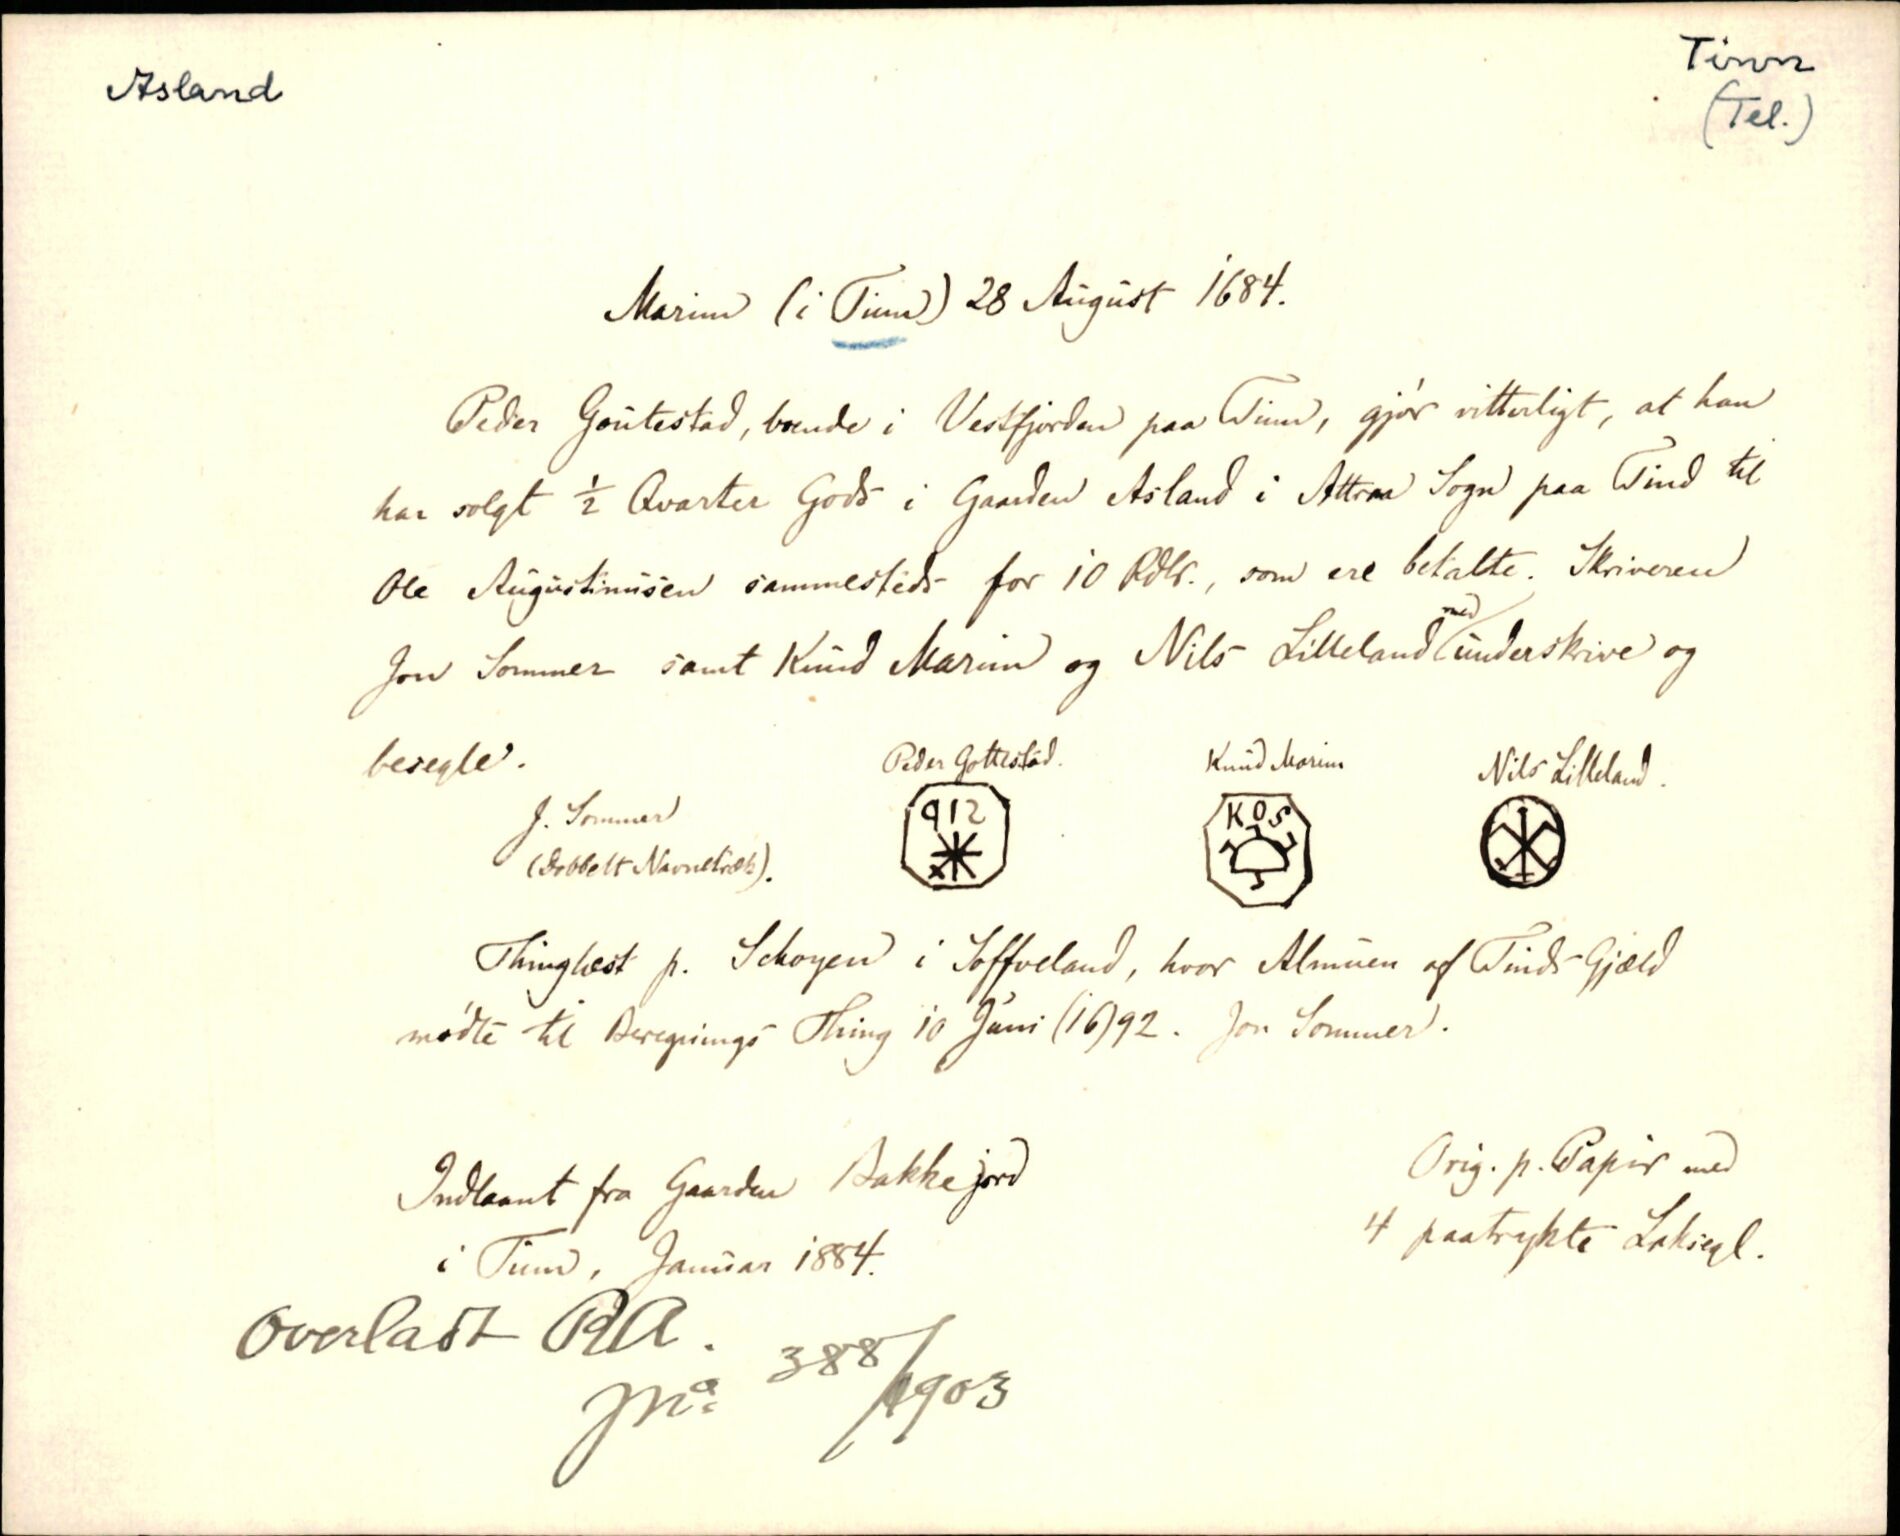 Asland
Tinn
(Tel.)
Marim (i Tinn) 28 August 1684.
Peder Goutestad, boende i Vestfjorden paa Tinn, gjør vitterligt, at han
har solgt ½ Qvarter Gods i Gaarden Asland i Attraa Sogn paa Tind til
Ole Augustinusen sammesteds for 10 Rdlr., som ere betalte. Skriveren
Jon Sommer samt Knud Marim og Nils Lilleland med underskrive og
besegle.
Peder Gottestad.
Knud Marim
Nils Lilleland.
J. Sommer
(dobbelt Navnetræk).
912
KOS
Thinglæst p. Schoyen i Soffveland, hvor Almuen af Tinds Gjæld
mødte til Beregnings Thing 10 Juni (16)92. Jon Sommer.
Indlaant fra Gaarden Bakkejord
i Tinn, Januar 1884.
Orig. p. Papir med
4 paatrykte Laksegl.
Overladt RA.
388/1903